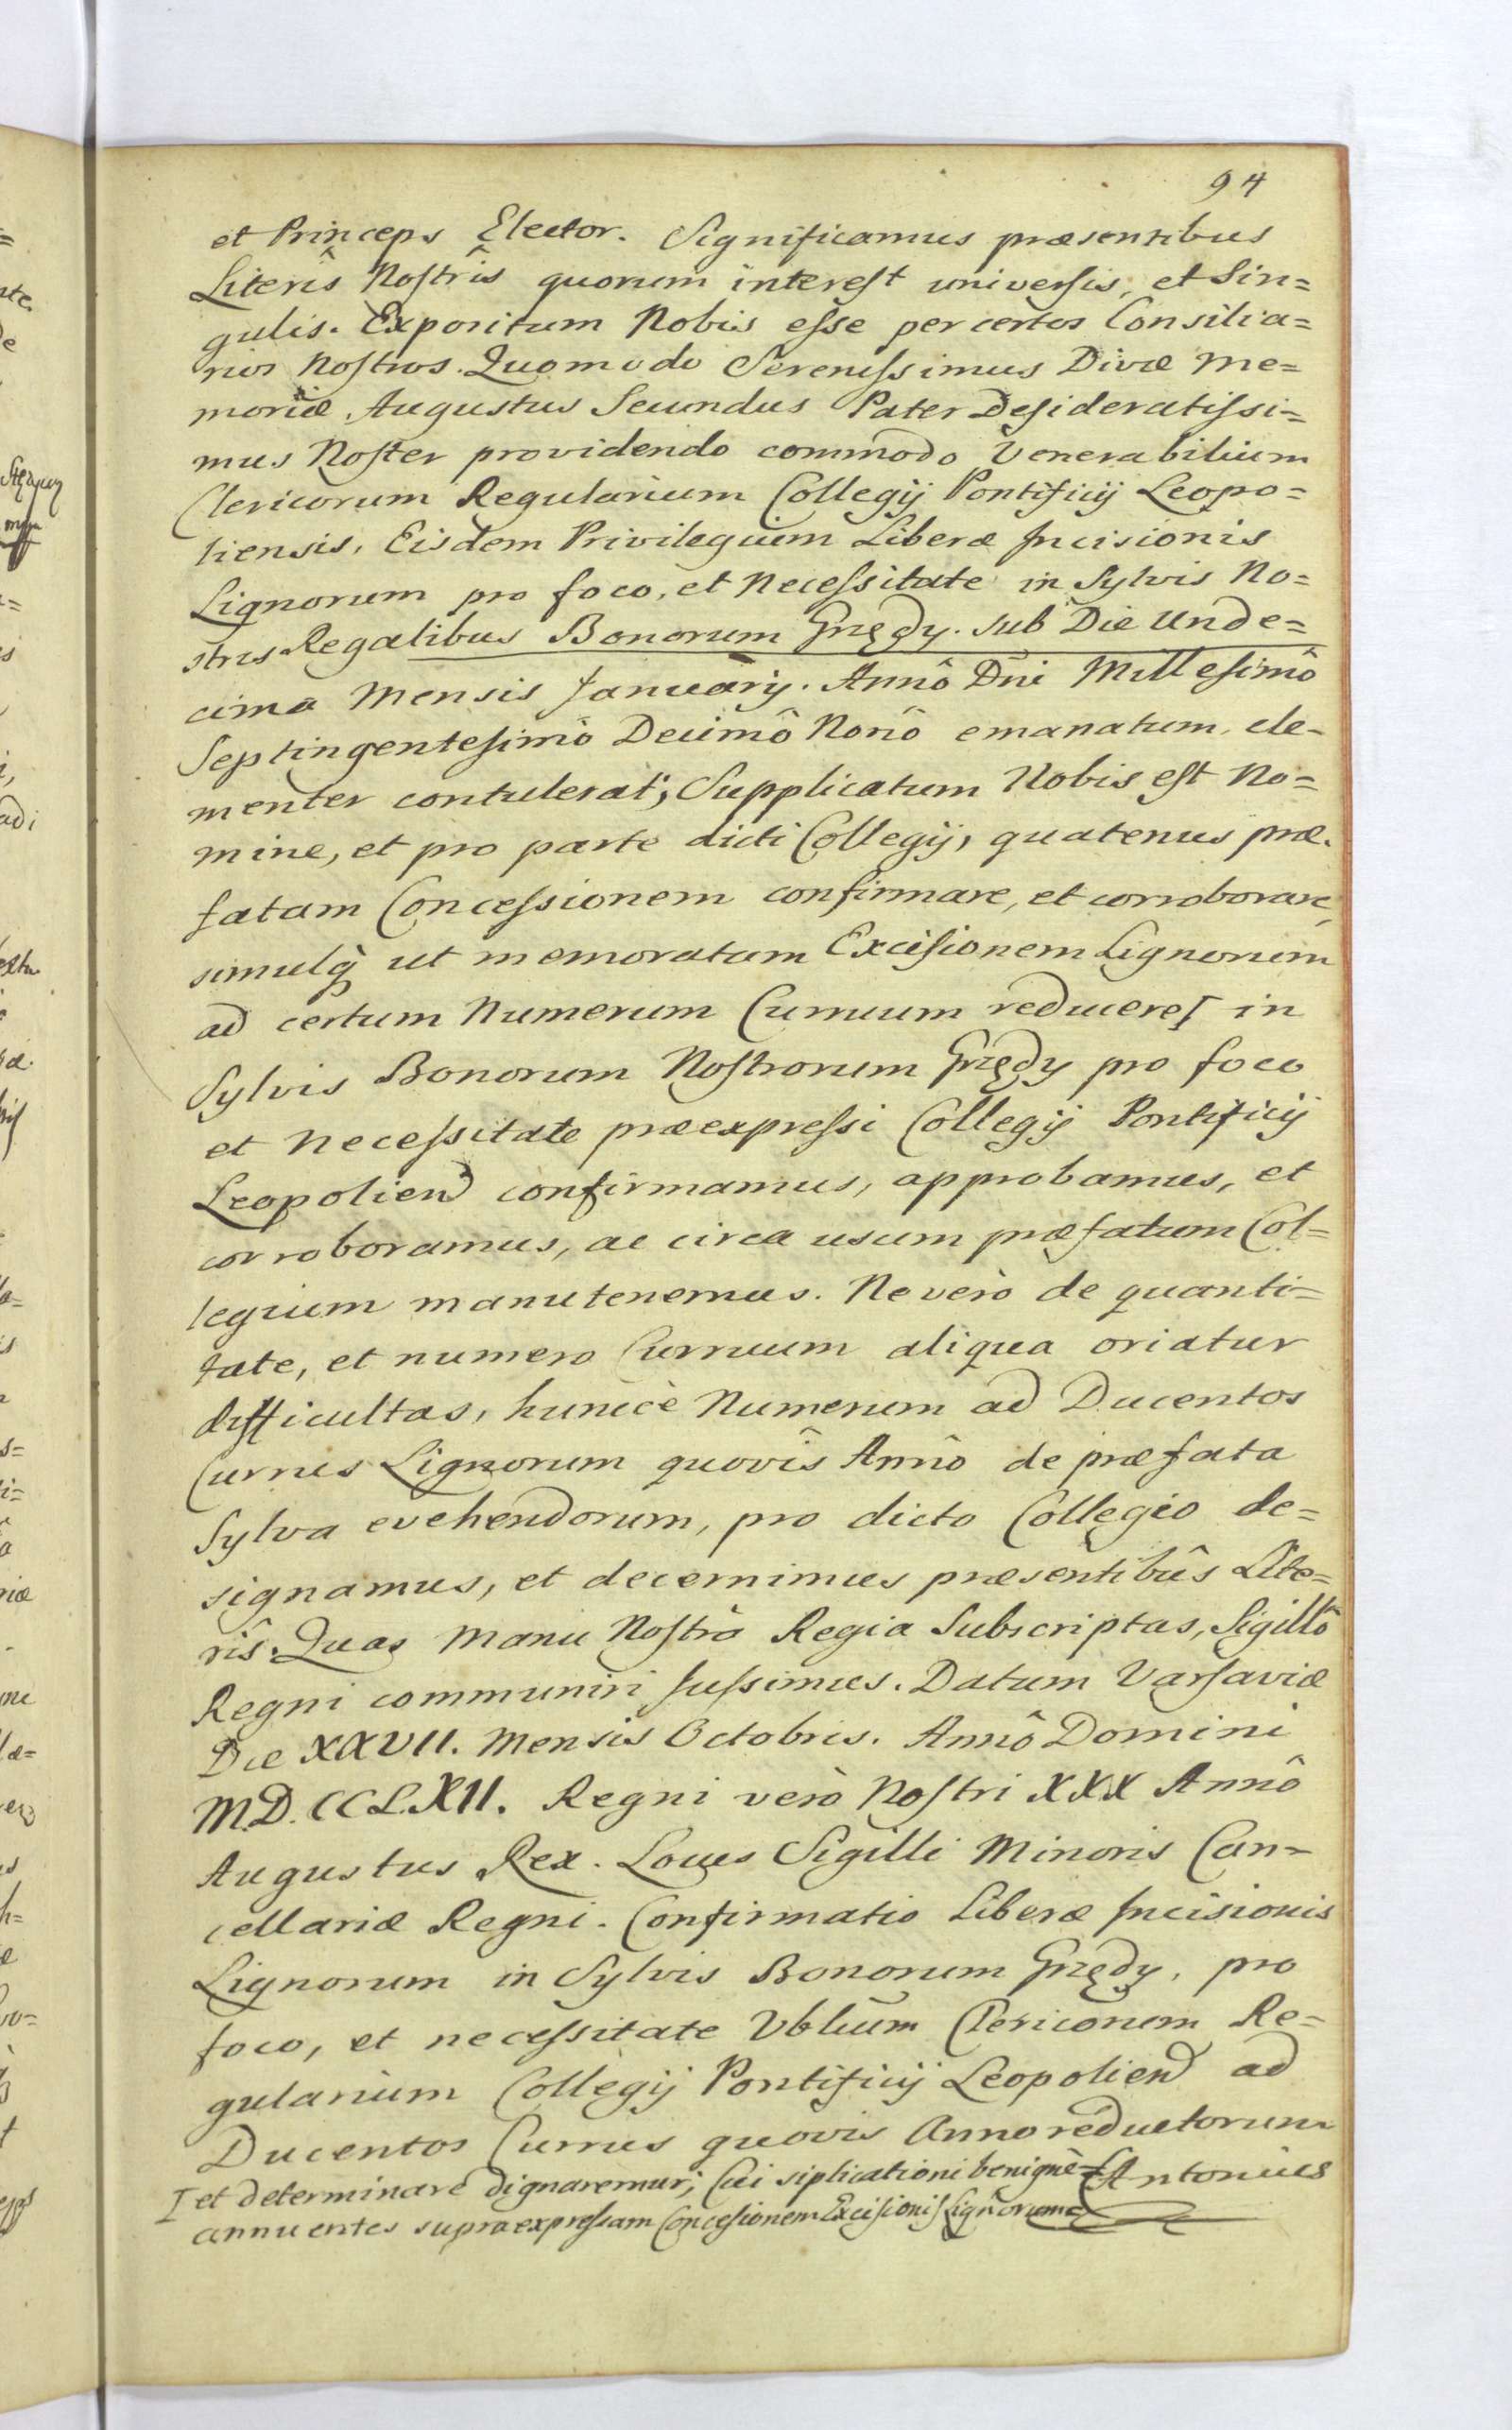 94
et Princeps Elector. Significamus præsentibus
Literîs Nostrîs quorum interest universis, et Sin=
gulis. Expositum Nobis esse per certos Consilia=
rios Nostros. Quomodo Serenissimus Divæ Me=
moriæ, Augustus Secundus Pater Desideratissi=
mus Noster providendo commodo Venerabilium
Clericorum Regularium Collegij Pontificij Leopo=
liensis, Eisdem Privilegium Liberæ Incisionis
Lignorum pro foco, et Necessitate in Sylvis No=
stris Regalibus Bonorum Grzędy. sub Die Unde=
cima Mensis Januarij. Annô Dñi Millesimô
Septingentesimô Decimô Nonô emanatum, cle=
menter contulerat; Supplicatum Nobis est No=
mine, et pro parte dicti Collegij, quatenus præ=
fatam Concessionem confirmare, et corroborare,
simulq̀ ut memoratam Excisionem Lignorum
ad certum Numerum Curruum reducere I in
Sylvis Bonorum Nostrorum Grzędy pro foco
et Necessitate præexpressi Collegij Pontificij
Leopolien confirmamus, approbamus, et
corroboramus, ac circa usum præfatum Col=
legium manutenemus. Ne verò de quanti=
tate, et numero Curruum aliqua oriatur
difficultas, huncce Numerum ad Ducentos
Currus Lignorum quovîs Annô de præfata
Sylva evehendorum, pro dicto Collegio de=
signamus, et decernimus præsentibûs Lite=
rîs. Quas Manu Nostrâ Regia Subscriptas, Sigillô
Regni communiri Jussimus. Datum Varsaviæ
Die XXVII. Mensis Octobris. Annô Domini
M.D.CCLXII. Regni verò Nostri XXX Annô
Augustus Rex. Locus Sigilli Minoris Can=
cellariæ Regni. Confirmatio Liberæ Incisionis
Lignorum in Sylvis Bonorum Grzędy, pro
foco, et necessitate Vblium Clericorum Re=
gularium Collegij Pontificij Leopolien ad
Ducentos Currus quovis Anno reductorum
I et determinare dignaremur; Cui siplicationi benignè Antonius
annuentes supra expressam Concesionem Excisionis Lignorum